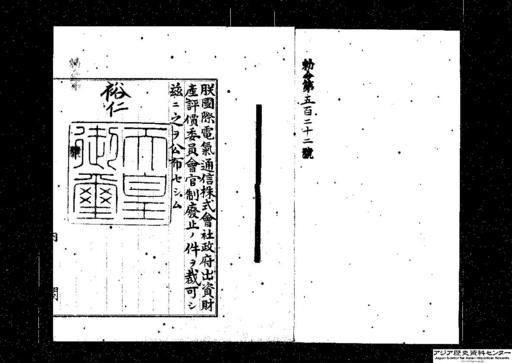 勅令第五百二十二號
朕國際電氣通信株式會社政府出資財
產評價委員會官制廢止ノ件ヲ裁可シ
玆ニ之ヲ公布セシム
裕仁
天皇
御璽
アジア歴史資料センター
Japan Center for Asian Historical Records